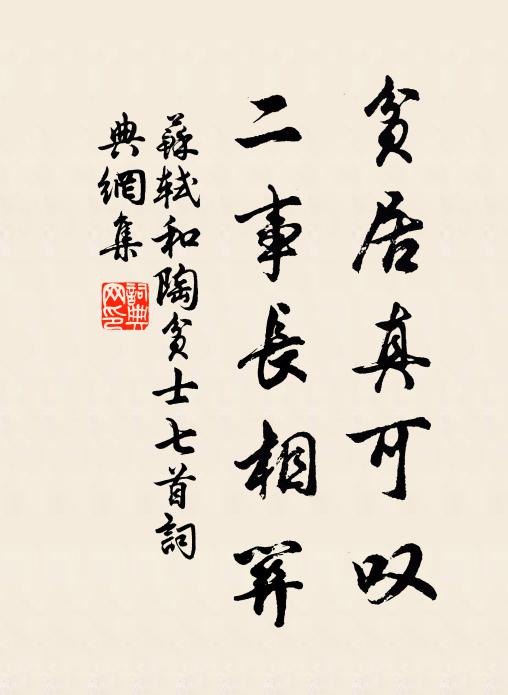 贫居真可叹
二事長相关
蘇軾和陶贫士七首詞
典網集
詞典
网印